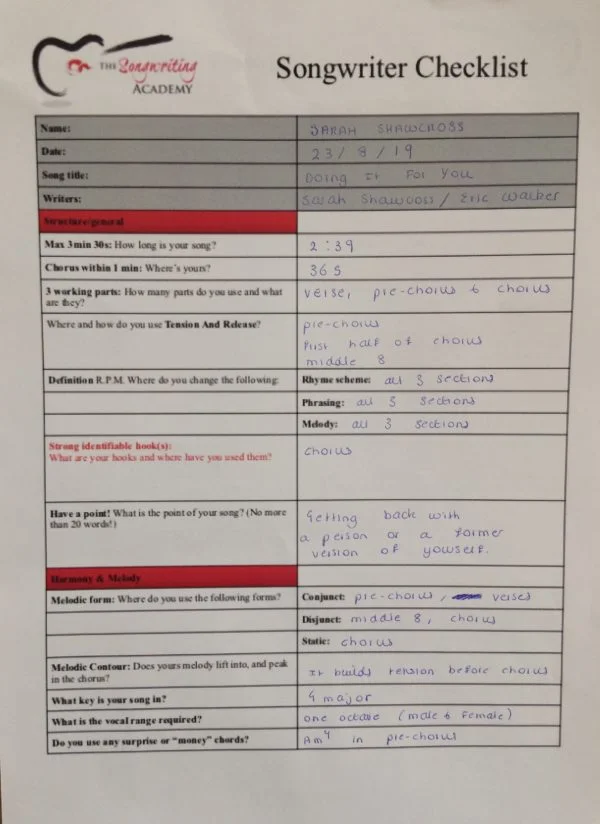 THE Songwriting
ACADEMY
Songwriter Checklist
Name: SARAH SHAWCROSS
Date: 23/8/19
Song title: Doing It For You
Writers: Sarah Shawcross / Eric Walker
Structure/general
Max 3min 30s: How long is your song? 2:39
Chorus within 1 min: Where's yours? 36s
3 working parts: How many parts do you use and what verse, pre-chorus & chorus
are they?
Where and how do you use Tension And Release? pre-chorus
First half of chorus
middle 8
Definition R.P.M. Where do you change the following: Rhyme scheme: all 3 sections
Phrasing: all 3 sections
Melody: all 3 sections
Strong identifiable hook(s): chorus
What are your hooks and where have you used them?
Have a point! What is the point of your song? (No more Getting back with
than 20 words!) a person or a former
version of yourself.
Harmony & Melody
Melodic form: Where do you use the following forms? Conjunct: pre-chorus, verses
Disjunct: middle 8, chorus
Static: chorus
Melodic Contour: Does yours melody lift into, and peak It builds tension before chorus
in the chorus?
What key is your song in? G major
What is the vocal range required? one octave (male & female)
Do you use any surprise or "money" chords? Am4 in pre-chorus